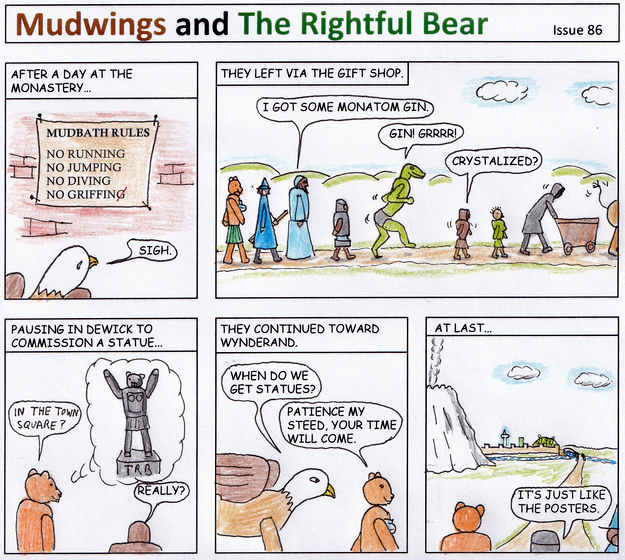 Mudwings and The Rightful Bear
Issue 86
AFTER A DAY AT THE
MONASTERY...
MUDBATH RULES
NO RUNNING
NO JUMPING
NO DIVING
NO GRIFFING
SIGH.
THEY LEFT VIA THE GIFT SHOP.
I GOT SOME MONATOM GIN.
GIN! GRRRR!
CRYSTALIZED?
PAUSING IN DEWICK TO
COMMISSION A STATUE...
IN THE TOWN
SQUARE?
T.R.B
REALLY?
THEY CONTINUED TOWARD
WYNDERAND.
WHEN DO WE
GET STATUES?
PATIENCE MY
STEED, YOUR TIME
WILL COME.
AT LAST...
IT'S JUST LIKE
THE POSTERS.